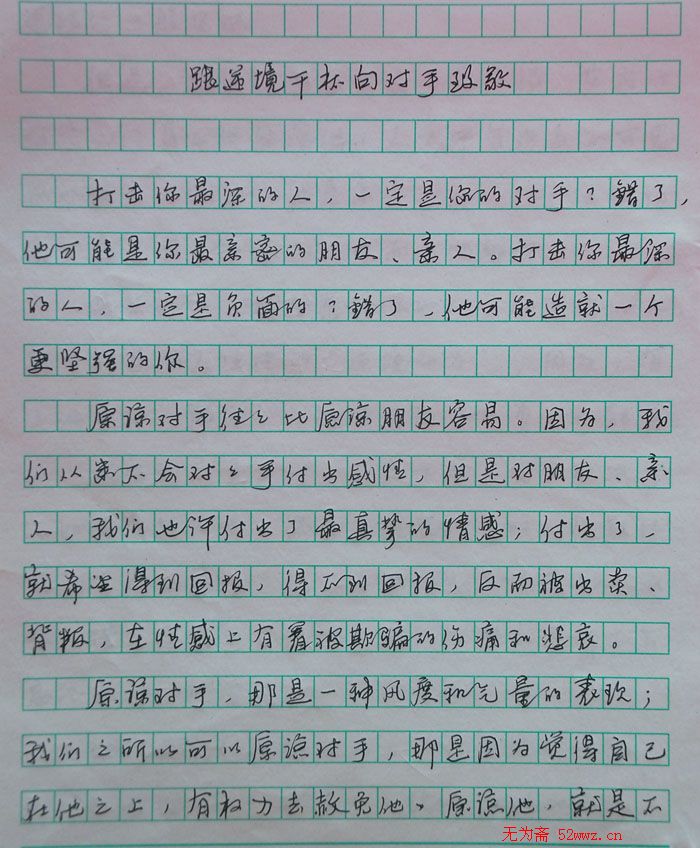 跟逆境干杯向对手致敬
打击你最深的人，一定是你的对手？错了，
他可能是你最亲密的朋友、亲人。打击你最深
的人，一定是负面的？错了，他可能造就一个
更坚强的你。
原谅对手往々比原谅朋友容易。因为，我
们从来不会对々手付出感情，但是对朋友、亲
人，我们也许付出了最真挚的情感；付出了，
就希望得到回报，得不到回报，反而被出卖、
背叛，在性感上有着被欺骗的伤痛和悲哀。
原谅对手，那是一种风度和气量的表现；
我们之所以可以原谅对手，那是因为觉得自己
在他之上，有权力去赦免他。原谅他，就是不
无为斋 52wwz.cn